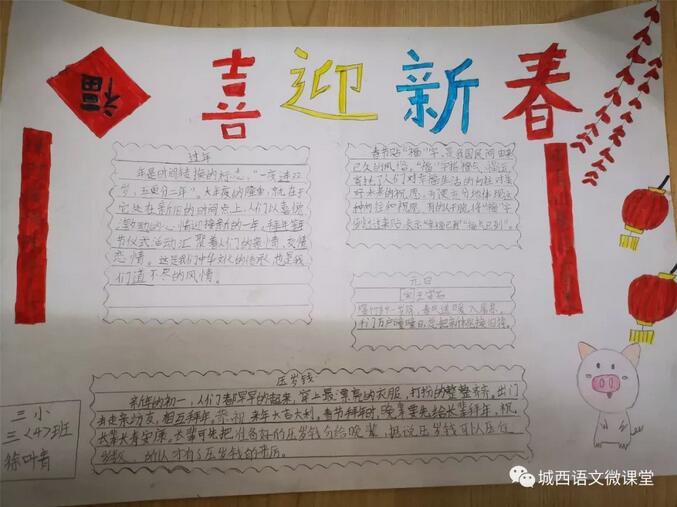 福
喜迎新春
过年
年是时间转换的标志，“一夜连双
岁，五更分二年”。大年夜的隆重，就在于
它处在新旧的时间点上，人们以喜悦
激动的心情迎接新的一年，拜年
节仪式活动汇聚着人们的亲情、友情
恋情。这是我们中华文化的传承，也是我
们道不尽的风情。
春节贴“福”字，是我国民间由来
已久的风俗。“福”字指福气、福运，
寄托了人们对幸福生活的向往对美
好未来的祝愿。为了更充分地体现这
种向往和祝愿，有的人干脆将“福”字
倒过来贴，表示“幸福已到”“福气已到”。
元日
宋王安石
爆竹声中一岁除，春风送暖入屠苏。
千门万户曈曈日，总把新桃换旧符。
压岁钱
新年的初一，人们都早早的起来，穿上最漂亮的衣服，打扮的整整齐齐，出门
去走亲访友，相互拜年。恭祝来年大吉大利，春节拜年时，晚辈要先给长辈拜年，祝
长辈长寿安康。长辈可先把准备好的压岁钱分给晚辈，据说压岁钱可以压住
邪祟，所以才有了压岁钱的来历。
三小
三〈4〉班
徐叶青
城西语文微课堂